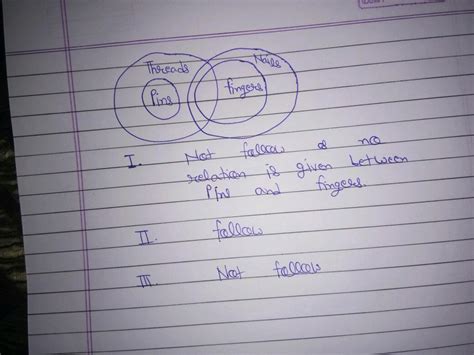 Threads
Nails
Pins
fingers
I. Not follow as no
relation is given between
Pins and fingers.
II. follow
III. Not follow